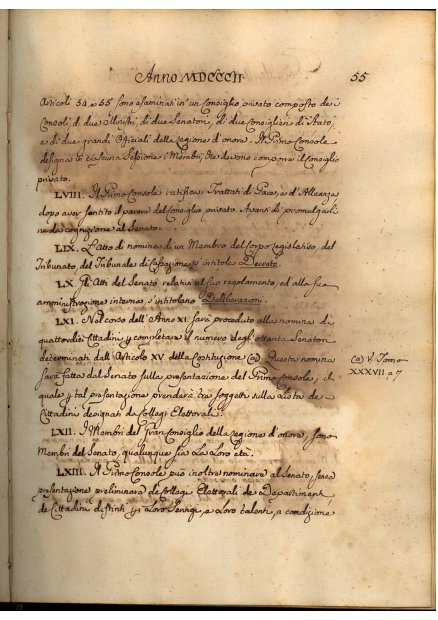 Anno MDCCCII 55
Articoli 54, e 55 sono esaminati in un Consiglio privato composto de i
Consoli di due Ministri, di due Senatori, di due Consiglieri di Stato,
e di due grandi Officiali della Legione d'onore. Il Primo Console
designa in ciascuna Sessione i Membri, che devono comporre il Consiglio
privato.
LVIII. Il Primo Console ratifica i Trattati di Pace, e d'Alleanza
dopo aver sentito il parere del Consiglio privato. Avanti di promulgarli
ne dà cognizione al Senato.
LIX. L'atto di nomina di un Membro del Corpo Legislativo, del
Tribunato, del Tribunale di Cassazione s'intitola Decreto.
LX. Gli Atti del Senato relativi al suo regolamento, ed alla sua
amministrazione interna, s'intitolano Deliberazioni.
LXI. Nel corso dell'Anno XI. sarà proceduto alla nomina di
quattordici Cittadini per completare il numero degli ottanta Senatori
determinati dall'Articolo XV della Costituzione (a) Questa nomina
sarà fatta dal Senato sulla presentazione del Primo Console, il
quale per tal presentazione prenderà tra soggetti sulla Lista de
Cittadini designati da Collegi Elettorali.
(a) V. Tomo
XXXVII a 7
LXII. I Membri del Gran Consiglio della Legione d'onore, sono
Membri del Senato, qualunque sia la Loro età.
LXIII. Il Primo Console può inoltre nominare al Senato, senza
presentazione preliminare de Collegi Elettorali de Dipartimenti
de Cittadini distinti per i Loro Servigi, e Loro talenti, a condizione